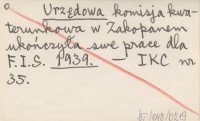 Urzędowa komisja kwa-
terunkowa w Zakopanem
ukończyła swe prace dla
F.I.S. 1939. — IKC nr
35.